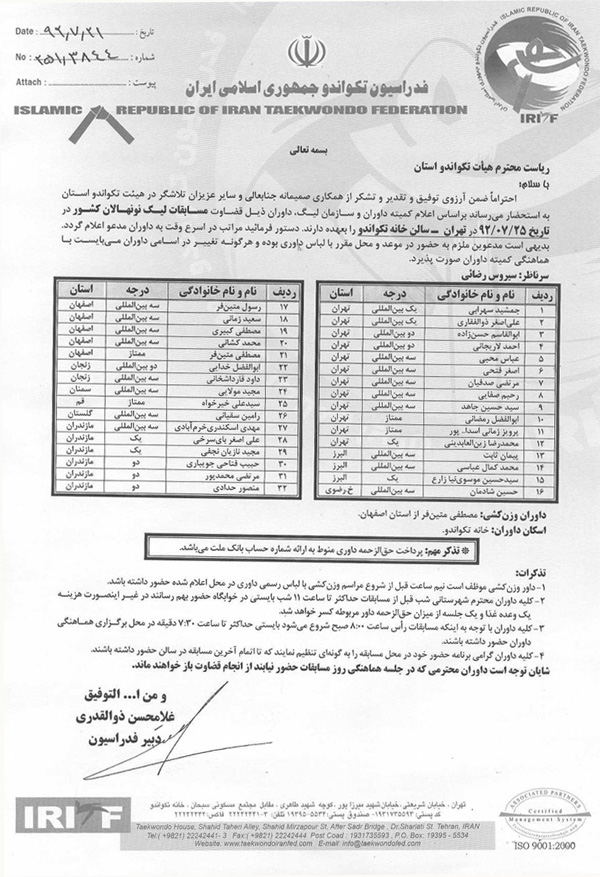 Date : ۹۲,۷,۲۱ تاریخ :
No : ۲۵۱,۳۸۴۴ شماره :
Attach : پیوست :
ISLAMIC REPUBLIC OF IRAN TAEKWONDO FEDERATION
IRITF
فدراسیون تکواندو جمهوری اسلامی ایران
ISLAMIC REPUBLIC OF IRAN TAEKWONDO FEDERATION
بسمه تعالی
ریاست محترم هیأت تکواندو استان
با سلام؛
احتراماً ضمن آرزوی توفیق و تقدیر و تشکر از همکاری صمیمانه جنابعالی و سایر عزیزان تلاشگر در هیئت تکواندو استان
به استحضار می‌رساند براساس اعلام کمیته داوران و سازمان لیگ، داوران ذیل قضاوت مسابقات لیگ نونهالان کشور در
تاریخ ۹۲/۰۷/۲۵ در تهران – سالن خانه تکواندو را بعهده دارند. دستور فرمائید مراتب در اسرع وقت به داوران مدعو اعلام گردد.
بدیهی است مدعوین ملزم به حضور در موعد و محل مقرر با لباس داوری بوده و هرگونه تغییر در اسامی داوران می‌بایست با
هماهنگی کمیته داوران صورت پذیرد.
سرناظر: سیروس رضائی
ردیف نام و نام خانوادگی درجه استان
۱ جمشید سهرابی یک بین‌المللی تهران
۲ علی‌اصغر ذوالفقاری یک بین‌المللی تهران
۳ ابوالقاسم حسن‌زاده دو بین‌المللی تهران
۴ احمد لاریجانی دو بین‌المللی تهران
۵ عباس محبی سه بین‌المللی تهران
۶ اصغر فتحی سه بین‌المللی تهران
۷ مرتضی صدقیان سه بین‌المللی تهران
۸ رحیم صفایی سه بین‌المللی تهران
۹ سید حسین جاهد سه بین‌المللی تهران
۱۰ ابوالفضل رمضانی ممتاز تهران
۱۱ پرویز زمانی اسدا... پور ممتاز تهران
۱۲ محمدرضا زین‌العابدینی یک تهران
۱۳ پیمان ثابت سه بین‌المللی البرز
۱۴ محمد کمال عباسی سه بین‌المللی البرز
۱۵ سیدحسین موسوی‌نیا زارع یک البرز
۱۶ حسین شادمان سه بین‌المللی خ.رضوی
ردیف نام و نام خانوادگی درجه استان
۱۷ رسول متین‌فر سه بین‌المللی اصفهان
۱۸ سعید زمانی سه بین‌المللی اصفهان
۱۹ مصطفی کبیری سه بین‌المللی اصفهان
۲۰ محمد کشانی سه بین‌المللی اصفهان
۲۱ مصطفی متین‌فر ممتاز اصفهان
۲۲ ابوالفضل خدایی دو بین‌المللی زنجان
۲۳ داود قارداشخانی سه بین‌المللی زنجان
۲۴ مجید مولایی سه بین‌المللی سمنان
۲۵ سیدعلی خیرخواه ممتاز قم
۲۶ رامین سقیانی سه بین‌المللی گلستان
۲۷ مهدی اسکندری‌خرم‌آبادی سه بین‌المللی مازندران
۲۸ علی اصغر پای‌سرخی یک مازندران
۲۹ مجید نازیان نجفی یک مازندران
۳۰ حبیب فتاحی جویباری دو مازندران
۳۱ مرتضی محمدپور دو مازندران
۳۲ منصور حدادی دو مازندران
داوران وزن‌کشی: مصطفی متین‌فر از استان اصفهان.
اسکان داوران: خانه تکواندو.
* تذکر مهم: پرداخت حق‌الزحمه داوری منوط به ارائه شماره حساب بانک ملت می‌باشد.
تذکرات:
۱-داور وزن‌کشی موظف است نیم ساعت قبل از شروع مراسم وزن‌کشی با لباس رسمی داوری در محل اعلام شده حضور داشته باشد.
۲-کلیه داوران محترم شهرستانی شب قبل از مسابقات حداکثر تا ساعت ۱۱ شب بایستی در خوابگاه حضور بهم رسانند در غیر اینصورت هزینه
یک وعده غذا و یک جلسه از میزان حق‌الزحمه داور مربوطه کسر خواهد شد.
۳-کلیه داوران با توجه به اینکه مسابقات رأس ساعت ۸:۰۰ صبح شروع می‌شود بایستی حداکثر تا ساعت ۷:۳۰ دقیقه در محل برگزاری هماهنگی
داوران حضور داشته باشند.
۴-کلیه داوران گرامی برنامه حضور خود در محل مسابقه را به گونه‌ای تنظیم نمایند که تا اتمام آخرین مسابقه در سالن حضور داشته باشند.
شایان توجه است داوران محترمی که در جلسه هماهنگی روز مسابقات حضور نیابند از انجام قضاوت باز خواهند ماند.
و من ا... التوفیق
غلامحسن ذوالقدری
دبیر فدراسیون
IRITF
تهران ، خیابان شریعتی ، خیابان شهید میرزا پور ، کوچه شهید طاهری ، مقابل مجتمع مسکونی سبحان ، خانه تکواندو
کد پستی: ۱۹۳۱۷۳۵۵۹۳ صندوق پستی: ۵۵۳۴-۱۹۳۹۵ تلفن: ۳-۲۲۲۴۲۴۴۱ فاکس: ۲۲۲۴۲۴۴۴
Taekwondo House, Shahid Taheri Alley, Shahid Mirzapour St, After Sadr Bridge , Dr.Shariati St. Tehran, IRAN
Tel (+9821) 22242441- 3 Fax (+9821) 22242444 Post Coad : 1931735593 , P.O. Box: 19395 - 5534
Website. www.taekwondoiranfed.com Email. info@taekwondofed.com
ASSOCIATED PARTNERS
Certified
Management System
ISO 9001:2000